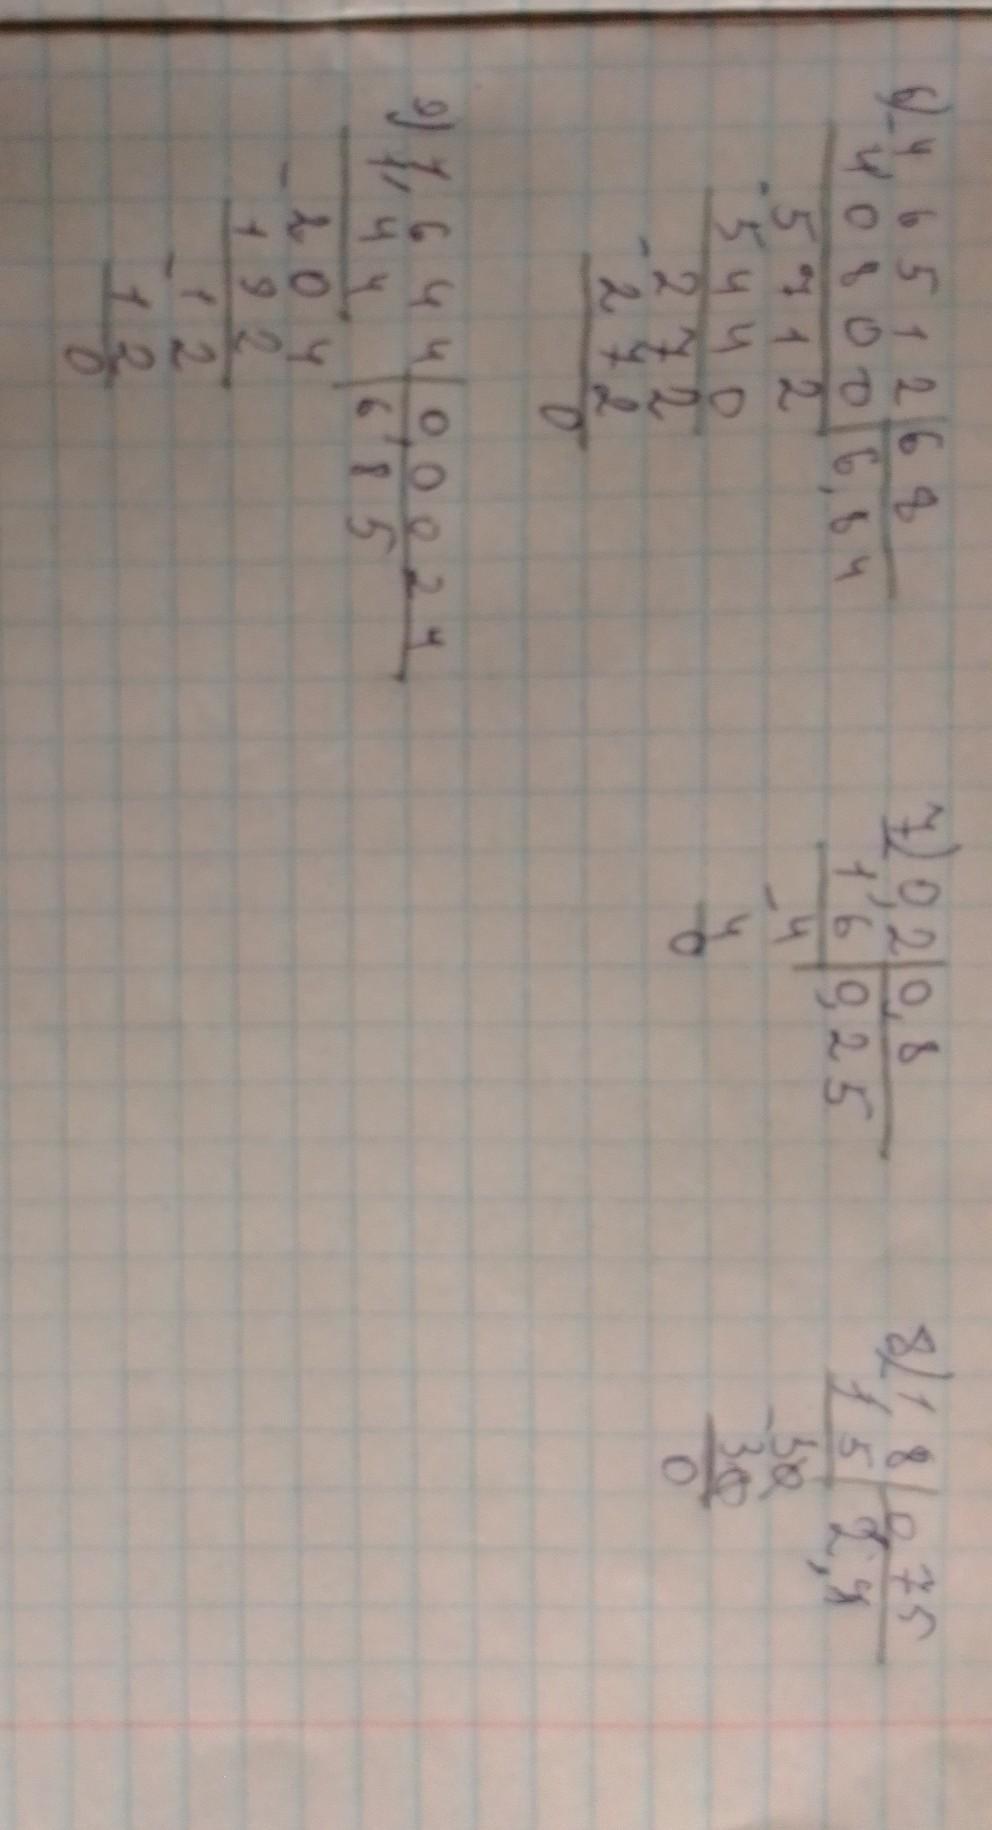 6) 46512 | 68
- 40800 | 6,84
- 5712
5440
- 272
272
0
7) 0,2 | 0,8
1,6 | 0,25
- 4
4
0
8) 1,8 | 0,75
1,5 | 2,4
- 30
30
0
9) 1,6444 | 0,0024
1,44 | 6,85
- 204
192
- 12
12
0